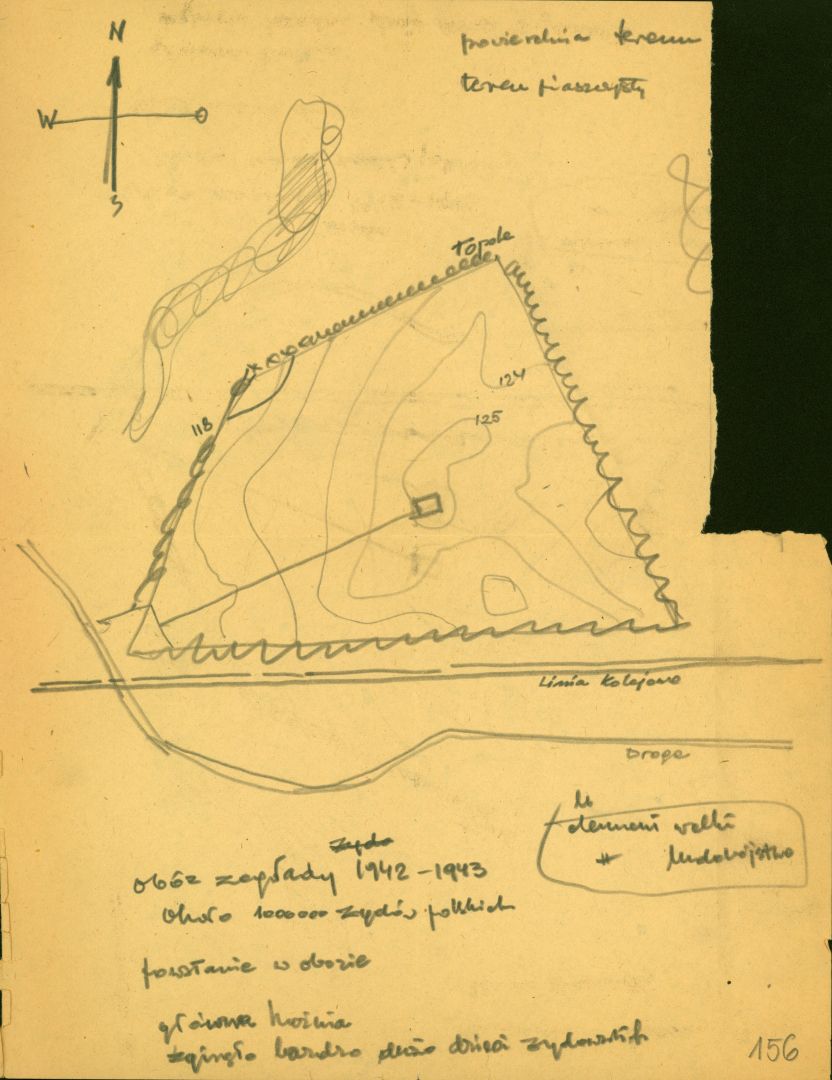 N
W O
S
powierzchnia terenu
teren piaszczysty
Topole
118
124
125
Linia Kolejowa
Droga
element walki
" ludobójstwo
Żyda
obóz zagłady 1942-1943
Około 1000000 żydów polskich
powstanie w obozie
główna
zginęło bardzo dużo dzieci żydowskich
156